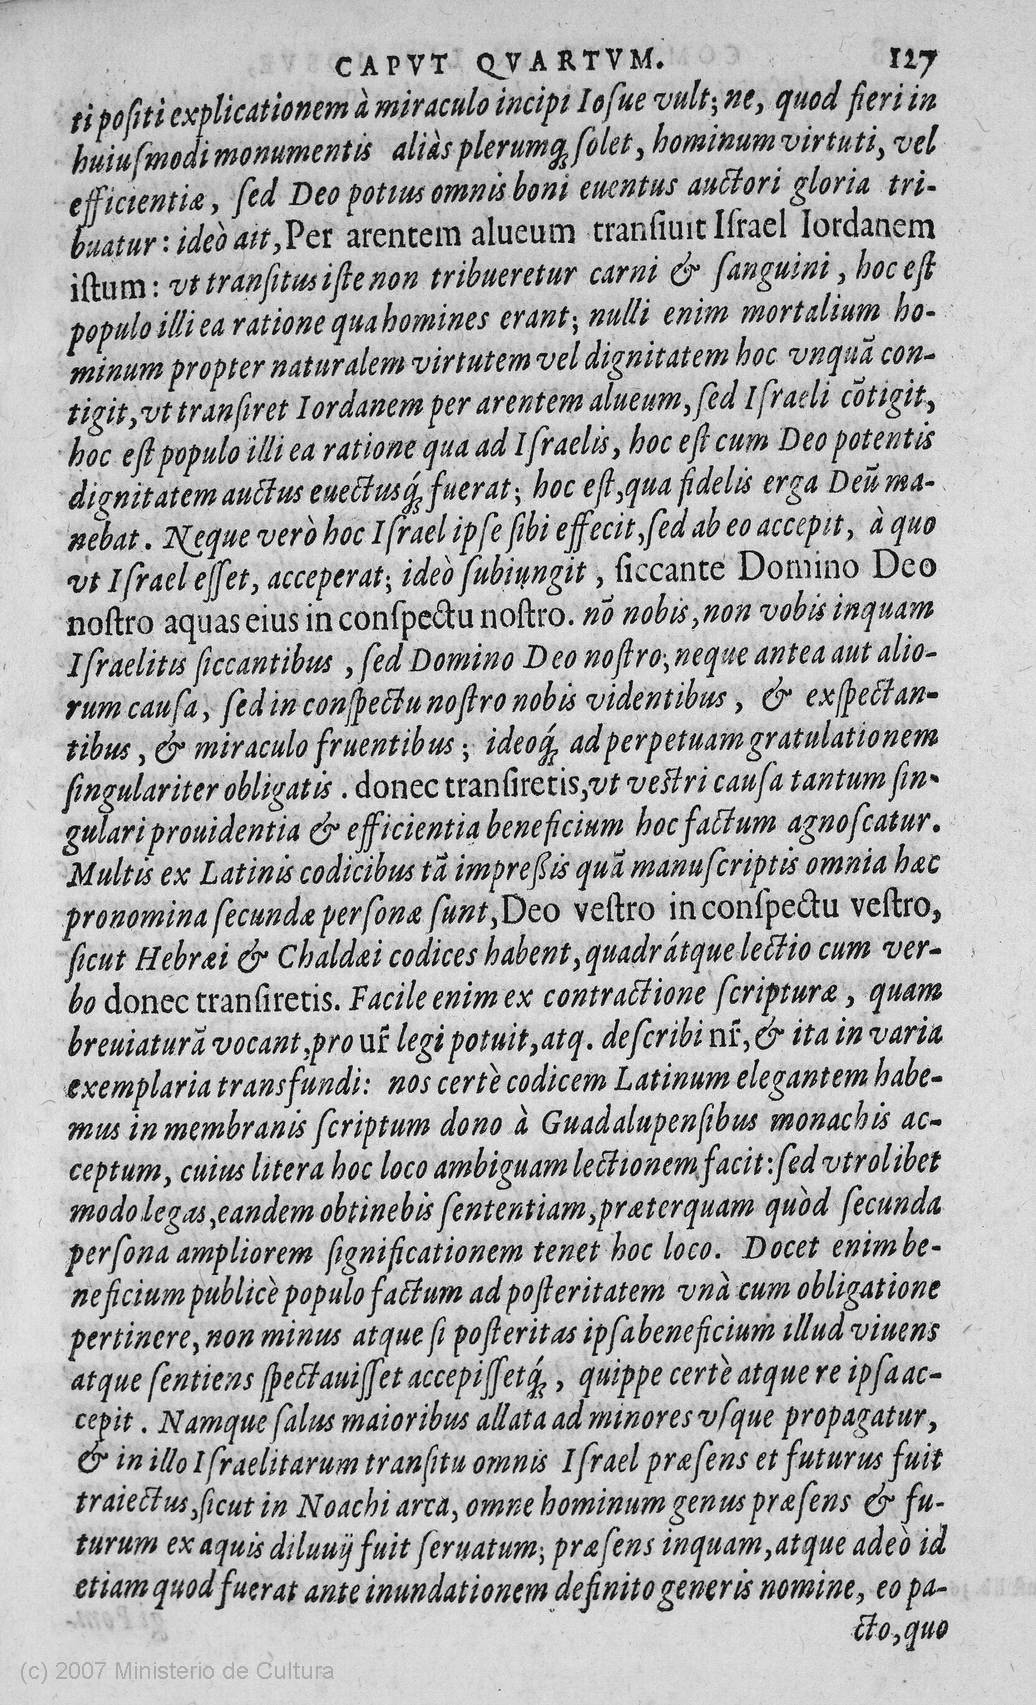 CAPVT QVARTVM. 127
ti positi explicationem à miraculo incipi Iosue vult; ne, quod fieri in
huiusmodi monumentis aliàs plerumq́; solet, hominum virtuti, vel
efficientiæ, sed Deo potius omnis boni euentus auctori gloria tri-
buatur: ideò ait, Per arentem alueum transiuit Israel Iordanem
istum: vt transitus iste non tribueretur carni & sanguini, hoc est
populo illi ea ratione qua homines erant; nulli enim mortalium ho-
minum propter naturalem virtutem vel dignitatem hoc vnquã con-
tigit, vt transiret Iordanem per arentem alueum, sed Israeli cõtigit,
hoc est populo illi ea ratione qua ad Israelis, hoc est cum Deo potentis
dignitatem auctus euectusq́; fuerat; hoc est, qua fidelis erga Deũ ma-
nebat. Neque verò hoc Israel ipse sibi effecit, sed ab eo accepit, à quo
vt Israel esset, acceperat; ideò subiungit, siccante Domino Deo
nostro aquas eius in conspectu nostro. nõ nobis, non vobis inquam
Israelitis siccantibus, sed Domino Deo nostro; neque antea aut alio-
rum causa, sed in conspectu nostro nobis videntibus, & exspectan-
tibus, & miraculo fruentibus; ideoq́; ad perpetuam gratulationem
singulariter obligatis. donec transiretis, vt vestri causa tantum sin-
gulari prouidentia & efficientia beneficium hoc factum agnoscatur.
Multis ex Latinis codicibus tã impreßis quã manuscriptis omnia hæc
pronomina secundæ personæ sunt, Deo vestro in conspectu vestro,
sicut Hebræi & Chaldæi codices habent, quadrátque lectio cum ver-
bo donec transiretis. Facile enim ex contractione scripturæ, quam
breuiaturã vocant, pro ur̃ legi potuit, atq. describi nr̃, & ita in varia
exemplaria transfundi: nos certè codicem Latinum elegantem habe-
mus in membranis scriptum dono à Guadalupensibus monachis ac-
ceptum, cuius litera hoc loco ambiguam lectionem facit: sed vtrolibet
modo legas, eandem obtinebis sententiam, præterquam quòd secunda
persona ampliorem significationem tenet hoc loco. Docet enim be-
neficium publicè populo factum ad posteritatem vnà cum obligatione
pertinere, non minus atque si posteritas ipsa beneficium illud viuens
atque sentiens spectauisset accepissetq́;, quippe certè atque re ipsa ac-
cepit. Namque salus maioribus allata ad minores vsque propagatur,
& in illo Israelitarum transitu omnis Israel præsens et futurus fuit
traiectus, sicut in Noachi arca, omne hominum genus præsens & fu-
turum ex aquis diluuij fuit seruatum; præsens inquam, atque adeò id
etiam quod fuerat ante inundationem definito generis nomine, eo pa-
cto, quo
(c) 2007 Ministerio de Cultura